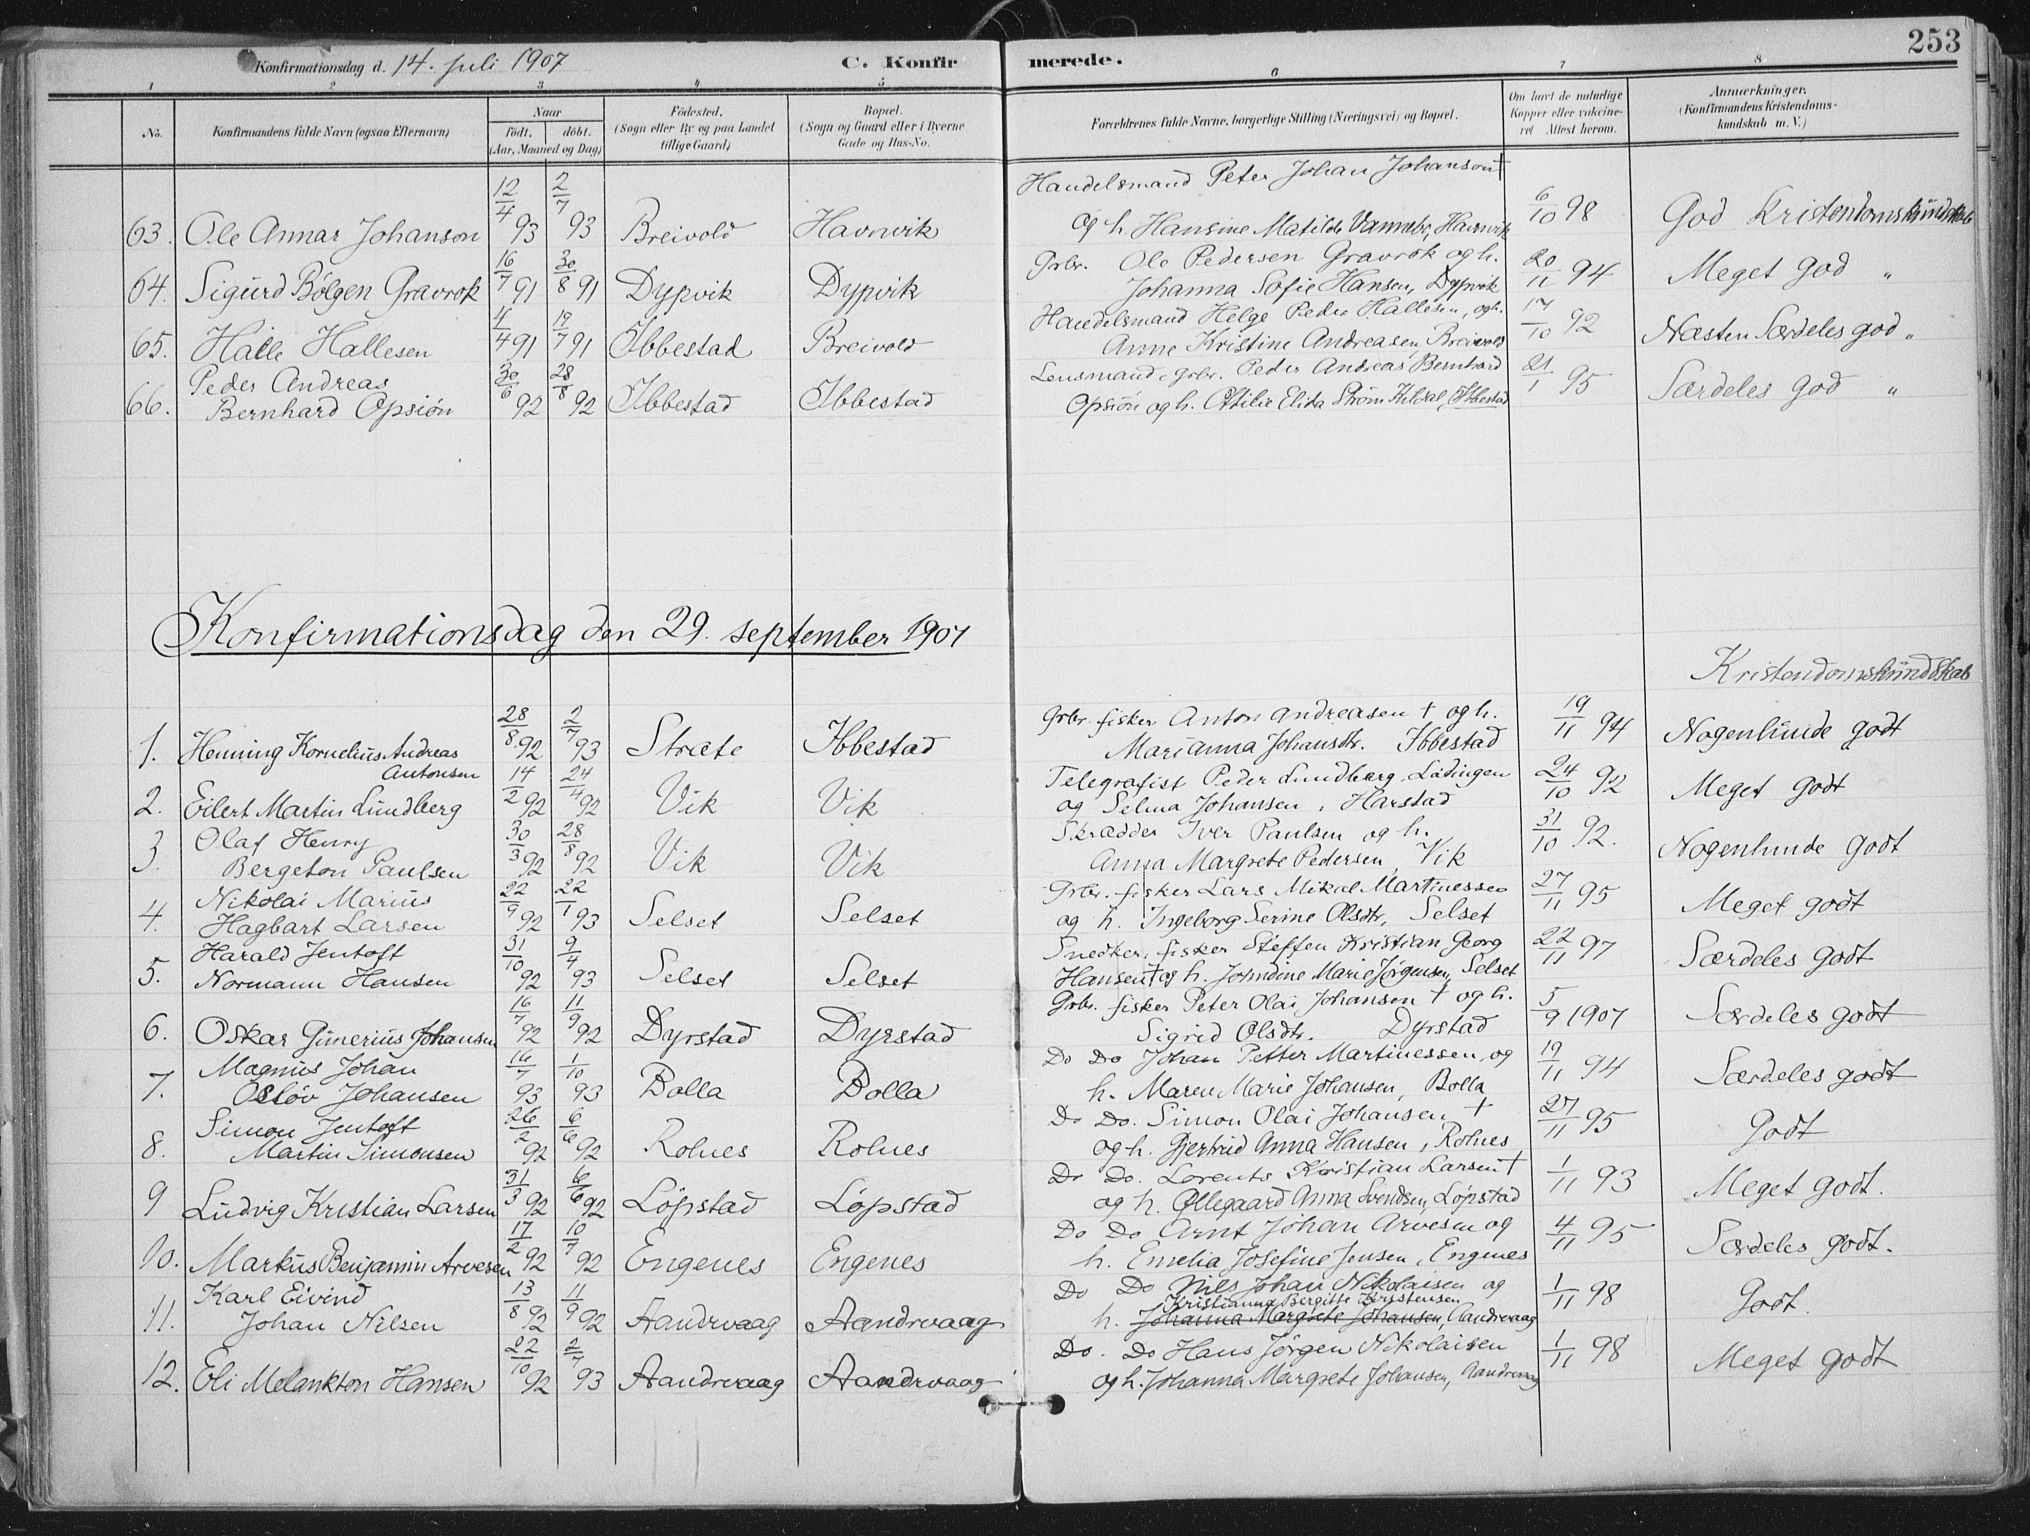 253
Konfirmationsdag d. 14. Juli 1907
C. Konfirmerede.
1 2 3 4 5 6 7 8
No. Konfirmandens fulde Navn (ogsaa Efternavn) Naar födt. döbt. (Aar, Maaned og Dag) Födested. (Sogn eller By og paa Landet tillige Gaard) Bopæl. (Sogn og Gaard eller i Byerne Gade og Hus-No. Forældrenes fulde Navne, borgerlige Stilling (Næringsvei) og Bopæl. Om havt de naturlige Kopper eller vakcineret Attest herom. Anmærkninger. (Konfirmandens Kristendomskundskab m. V.)
Handelsmand Peter Johan Johanson †
63. Ole Annar Johanson 12/4 93 2/7 93 Breivold Havnvik og h. Hansine Matilde Vannebo, Havnvik 6/10 98 God Kristendomskundskab
Grbr. Ole Pedersen Gravrok og h.
64. Sigurd Bölgen Gravrok 16/7 91 30/8 91 Dypvik Dypvik Johanna Sofie Hansen, Dypvik 20/11 94 Meget God "
Handelsmand Helge Peder Hallesen, og h.
65. Halle Hallesen 4/4 91 19/7 91 Ibbestad Breivold Anne Kristine Andreasen Breivold 17/10 92 Næsten Særdeles god "
Peder Andreas Lensmand, Grbr. Peder Andreas Bernhard
66. Bernhard Opsiøn 30/6 92 28/8 92 Ibbestad Ibbestad Opsiön og h. Ottilie Elida Strøm Kildal, Ibbestad 21/1 95 Særdeles God "
Konfirmationsdag den 29. september 1907
Kristendomskundskab
Grbr. fisker Anton Andreasen † og h.
1. Henning Kornelius Andreas 28/8 92 2/7 93 Stræte Ibbestad Marianna Johansdtr. Ibbestad 19/11 94 Nogenlunde godt
Antonsen Telegrafist Peder Lundberg Lødingen
2. Eilert Martin Lundberg 14/2 92 24/4 92 Vik Vik og Selma Johansen, Harstad 24/10 92 Meget godt
Olaf Henry Skrædder Iver Paulsen og h.
3. Bergeton Paulsen 30/3 92 28/8 92 Vik Vik Anna Margrete Pedersen, Vik 31/10 92. Nogenlunde Godt
Nikolai Marius Grbr. fisker Lars Mikal Martinessen
4. Hagbart Larsen 22/9 92 22/1 93 Selset Selset og h. Ingeborg Serine Olsdtr, Selset 27/11 95 Meget godt
Harald Jentoft Snedker, fisker Steffen Kristian Georg
5. Normann Hansen 31/10 92 9/4 93 Selset Selset Hansen † og h. Jomdine Marie Jørgensen, Selset 22/11 97 Særdeles godt
Grbr. fisker Peter Olai Johansen † og h.
6. Oskar Gunerius Johansen 16/7 92 11/9 92 Dyrstad Dyrstad Sigrid Olsdtr. Dyrstad 5/9 1907 Særdeles godt
Magnus Johan Do Do Johan Petter Martinessen, og
7. Osløv Johansen 16/7 93 1/10 93 Bolla Bolla h. Maren Marie Johansen, Bolla 19/11 94 Særdeles godt
Simon Jentoft Do Do. Simon Olai Johansen †
8. Martin Simonsen 26/2 92 6/6 92 Rolnes Rolnes og h. Gjertrud Anna Hansen, Rolnes 27/11 95 Godt
Do Do. Lorents Kristian Larsen †
9 Ludvig Kristian Larsen 31/3 92 6/6 92 Løpstad Løpstad og h. Øllegaard Anna Svendsen, Løpstad 1/11 93 Meget godt.
Do Do Arnt Johan Arvesen og
10. Markus Benjamin Arvesen 17/2 92 10/7 92 Engenes Engenes h. Emelia Josefine Jensen, Engenes 4/11 95 Særdeles godt.
Karl Eivind Do Do Nils Johan Nikolaisen og
Kristianna Bergitte Kristensen
11. Johan Nilsen 13/8 92 11/9 92 Aandrvaag Aandrvaag h. Johanna Margrete Johansen, Aandrvaag 1/11 98 Godt.
Do. Do Hans Jörgen Nikolaisen
12. Eli Melankton Hansen 22/10 92 2/7 93 Aandrvaag Aandrvaag og h. Johanna Margrete Johansen, Aandrvaag 1/11 98 Meget godt